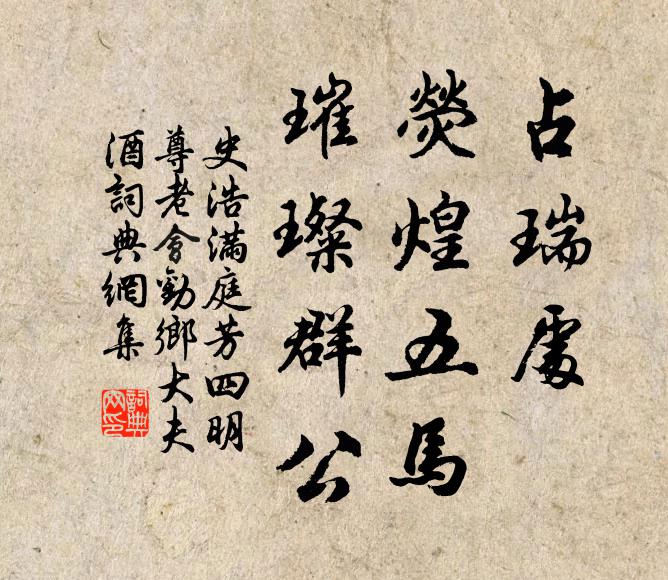 占瑞處
熒煌五馬
璀璨群公
史浩滿庭芳四明
尊老會勸鄉大夫
酒詞典網集
詞典
网印